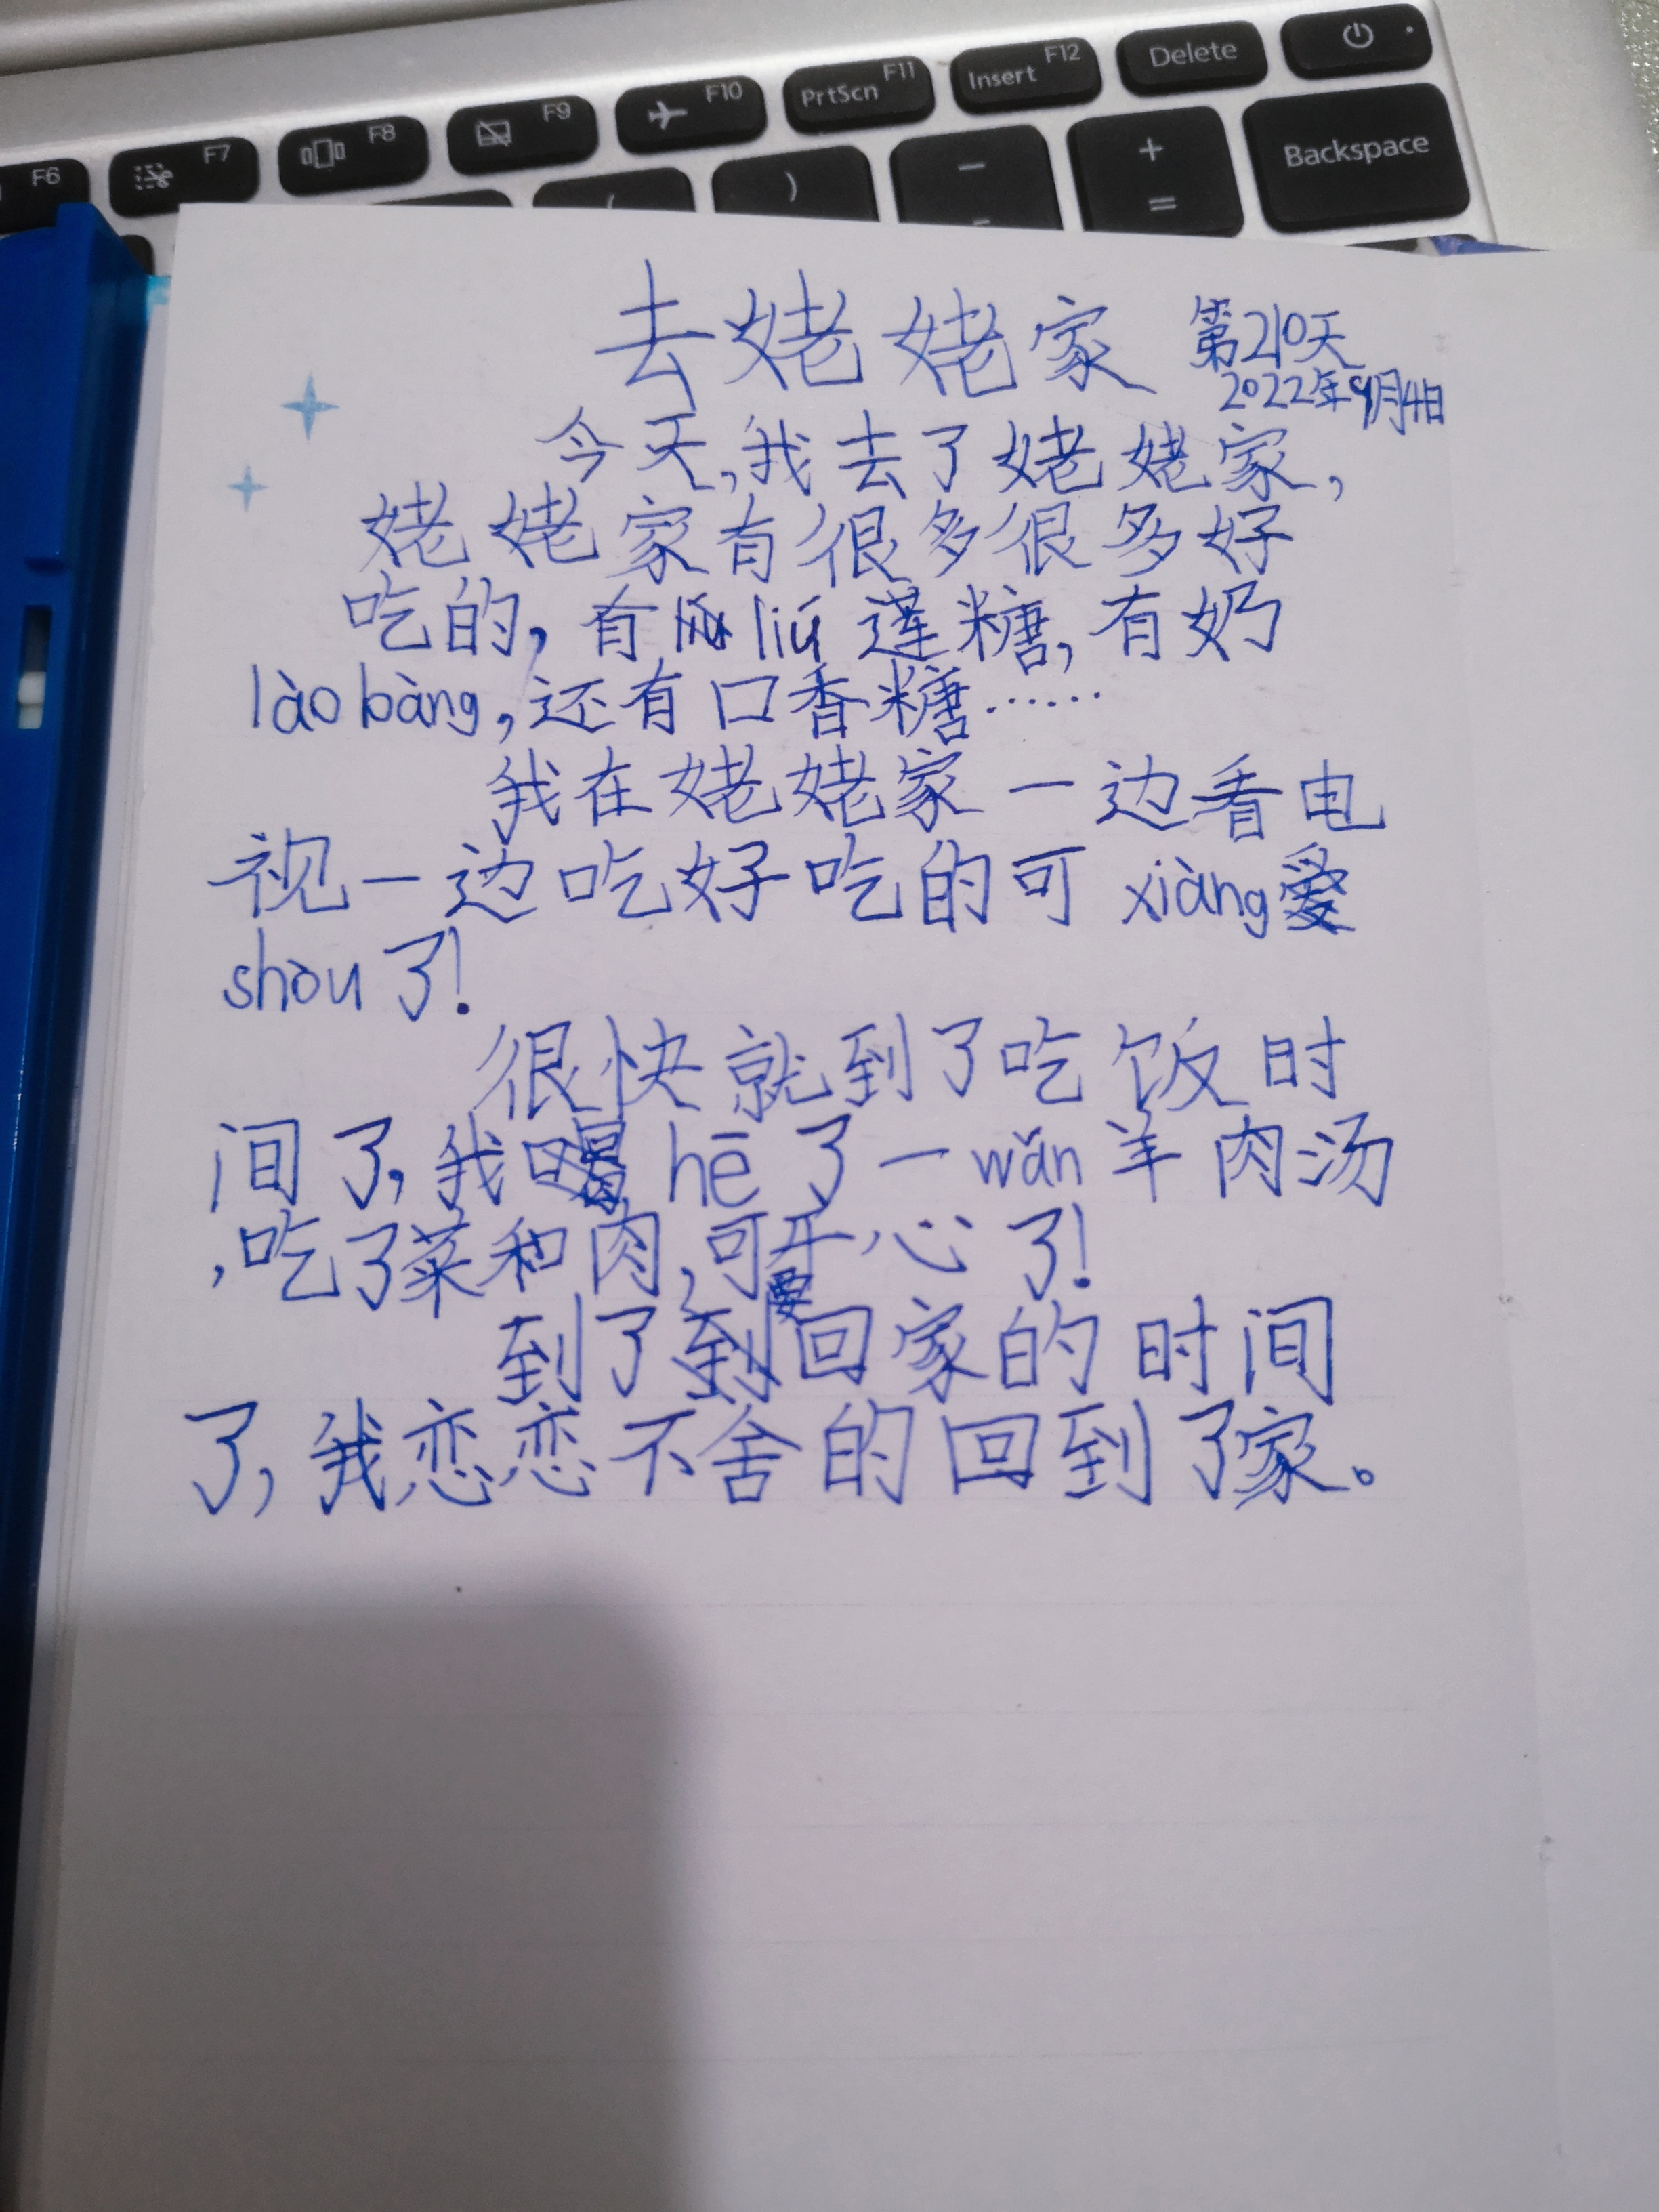 F6 F7 F8 F9 F10 PrtScn F11 Insert F12 Delete
( ) - + = Backspace
去姥姥家 第210天
2022年9月4日
今天,我去了姥姥家,
姥姥家有很多很多好
吃的,有 liú 莲糖,有奶
lào bàng,还有口香糖……
我在姥姥家一边看电
视一边吃好吃的可 xiàng
shòu 了!
很快就到了吃饭时
间了,我 hē 了一 wǎn 羊肉汤
,吃了菜和肉,可开心了!
到了要回家的时间
了,我恋恋不舍的回到了家。